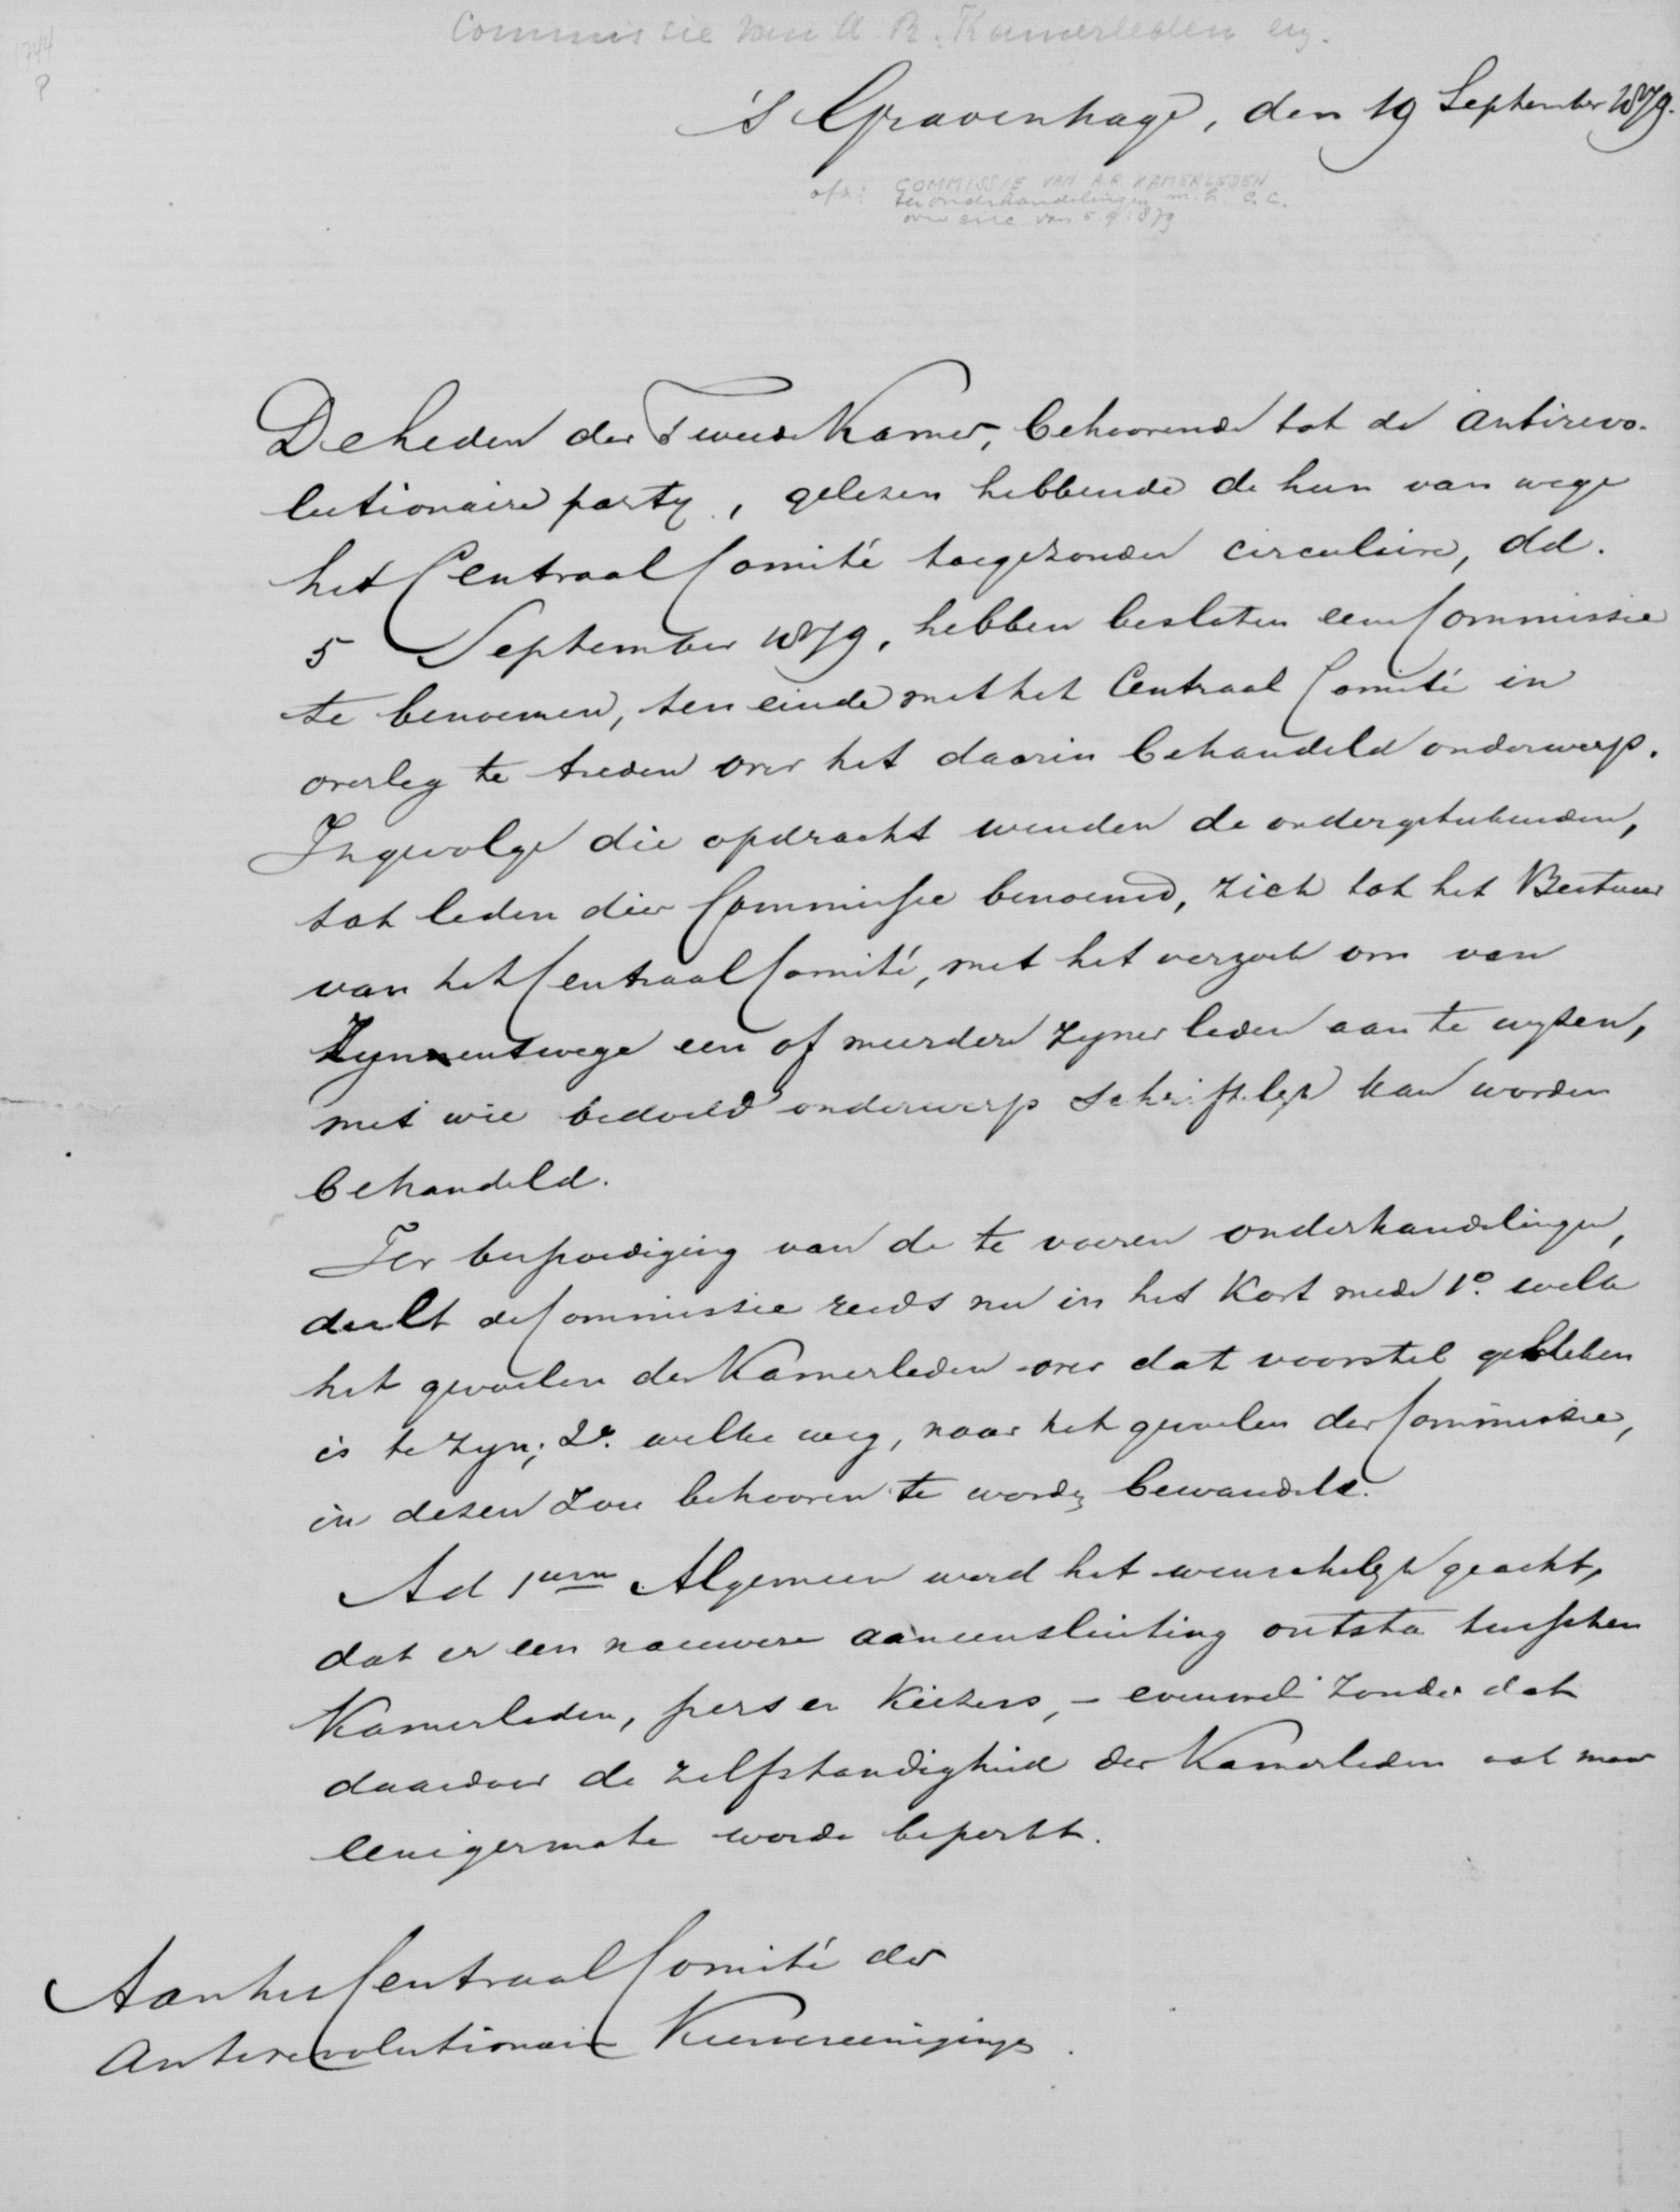 Commissie van A. R. Kamerleden enz.
1744
?
's Gravenhage, den 19 September 1879.
afz: COMMISSIE VAN A.R. KAMERLEDEN
ter onderhandelingen m. h. C.C.
over circ. van 5 9 1879
De Leden der Tweede Kamer, behoorende tot de antirevo-
lutionaire party, gelezen hebbende de hun van wege
het Centraal Comité toegezonden circulaire, dd.
5 September 1879, hebben besloten een Commissie
te benoemen, ten einde met het Centraal Comité in
overleg te treden over het daarin behandeld onderwerp.
Ingevolge die opdracht wenden de ondergeteekenden,
tot leden dier Commissie benoemd, zich tot het Bestuur
van het Centraal Comité, met het verzoek om van
zynentwege een of meerdere zyner leden aan te wyzen,
met wie bedoeld onderwerp schriftelyk kan worden
behandeld.
Ter bespoediging van de te voeren onderhandelingen,
deelt de Commissie reeds nu in het kort mede 1º. welk
het gevoelen der Kamerleden over dat voorstel gebleken
is te zyn; 2º. welke weg, naar het gevoelen der Commissie,
in dezen zou behooren te worden bewandeld.
Ad 1um Algemeen werd het wenschelyk geacht,
dat er een nauwere aaneensluiting ontsta tusschen
Kamerleden, pers en Kiezers, - evenwel zonder dat
daardoor de zelfstandigheid der Kamerleden ook maar
eenigermate worde beperkt.
Aan het Centraal Comité der
Antirevolutionaire Kiesvereenigingen.